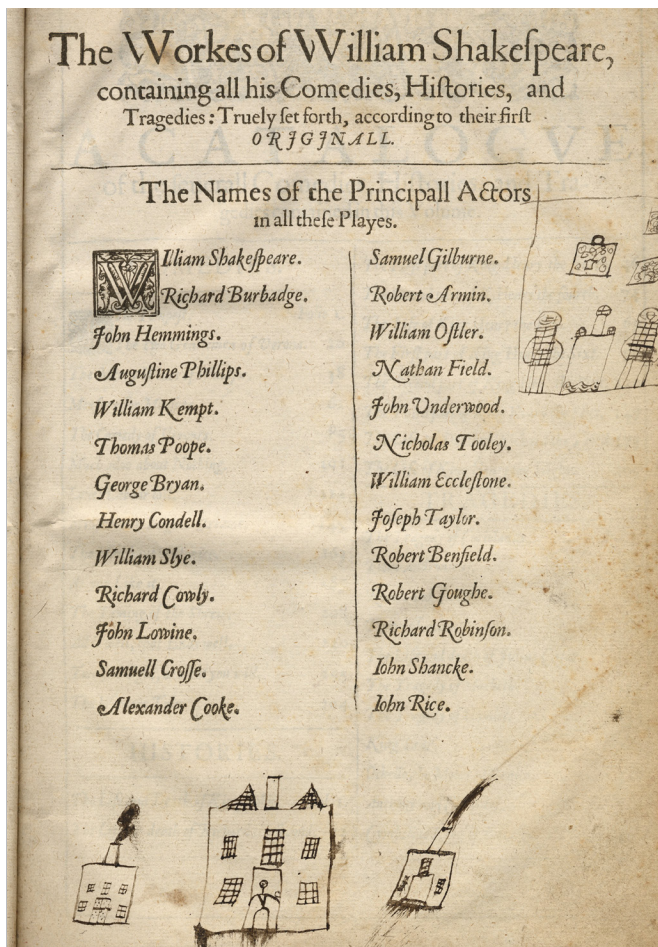 The Workes of William Shakeſpeare,
containing all his Comedies, Hiſtories, and
Tragedies: Truely ſet forth, according to their firſt
ORJGJNALL.
The Names of the Principall Actors
in all theſe Playes.
William Shakeſpeare.
Richard Burbadge.
John Hemmings.
Auguſtine Phillips.
William Kempt.
Thomas Poope.
George Bryan.
Henry Condell.
William Slye.
Richard Cowly.
John Lowine.
Samuell Croſſe.
Alexander Cooke.
Samuel Gilburne.
Robert Armin.
William Oſtler.
Nathan Field.
John Underwood.
Nicholas Tooley.
William Eccleſtone.
Joſeph Taylor.
Robert Benfield.
Robert Goughe.
Richard Robinſon.
Iohn Shancke.
Iohn Rice.